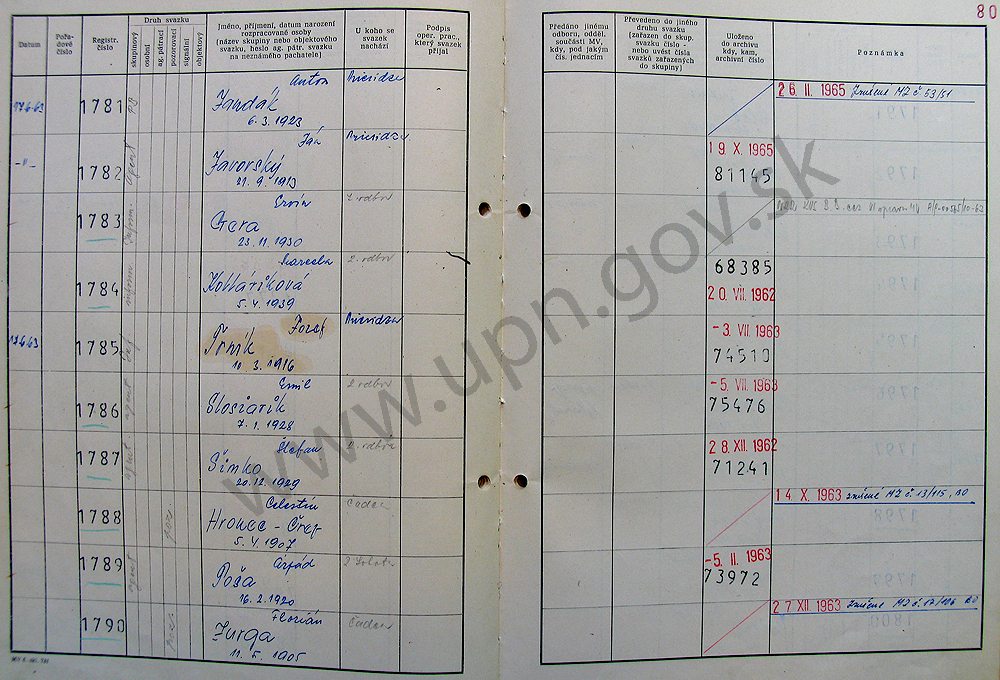 80
Datum
Pořadové číslo
Registr. číslo
Druh svazku
skupinový
osobní
ag. pátrací
pozorovací
signální
objektový
Jméno, příjmení, datum narození
rozpracované osoby
(název skupiny nebo objektového
svazku, heslo ag. pátr. svazku
na neznámého pachatele)
U koho se
svazek
nachází
Podpis
oper. prac.,
který svazek
přijal
Předáno jinému
odboru, odděl.
součásti MV,
kdy, pod jakým
čís. jednacím
Převedeno do jiného
druhu svazku
(zařazen do skup.
svazku číslo -
nebo uvést čísla
svazků zařazených
do skupiny)
Uloženo
do archivu
kdy, kam,
archivní číslo
Poznámka
1781
Anton
Jandák
6. 3. 1923
Prievidza
26. II. 1965 Zničené MZ č 53/51
-"-
1782
Agent
Ján
Javorský
21. 9. 1913
Prievidza
19. X. 1965
81145
1783
Ervín
Gera
23. 11. 1930
2 odbor
1784
Kolláriková
5. 4. 1939
2. odbor
68385
20. VII. 1962
1785
Jozef
Trník
10. 3. 1916
Prievidza
-3. VII. 1963
74510
1786
agent
Emil
Slosiarik
7. 1. 1928
2 odbor
-5. VII. 1963
75476
1787
agent
Štefan
Šimko
20. 12. 1929
2. odbor
28. XII. 1962
71241
1788
Celestín
Hronec -
5. 4. 1907
Čadca
14. X. 1963 zničené MZ č. 13/115, BO
1789
agent
Arpád
Poša
16. 2. 1920
-5. II. 1963
73972
1790
Florián
Jurga
11. 5. 1905
Čadca
27 XII. 1963 Zničené MZ č. 17/106 BO
www.upn.gov.sk